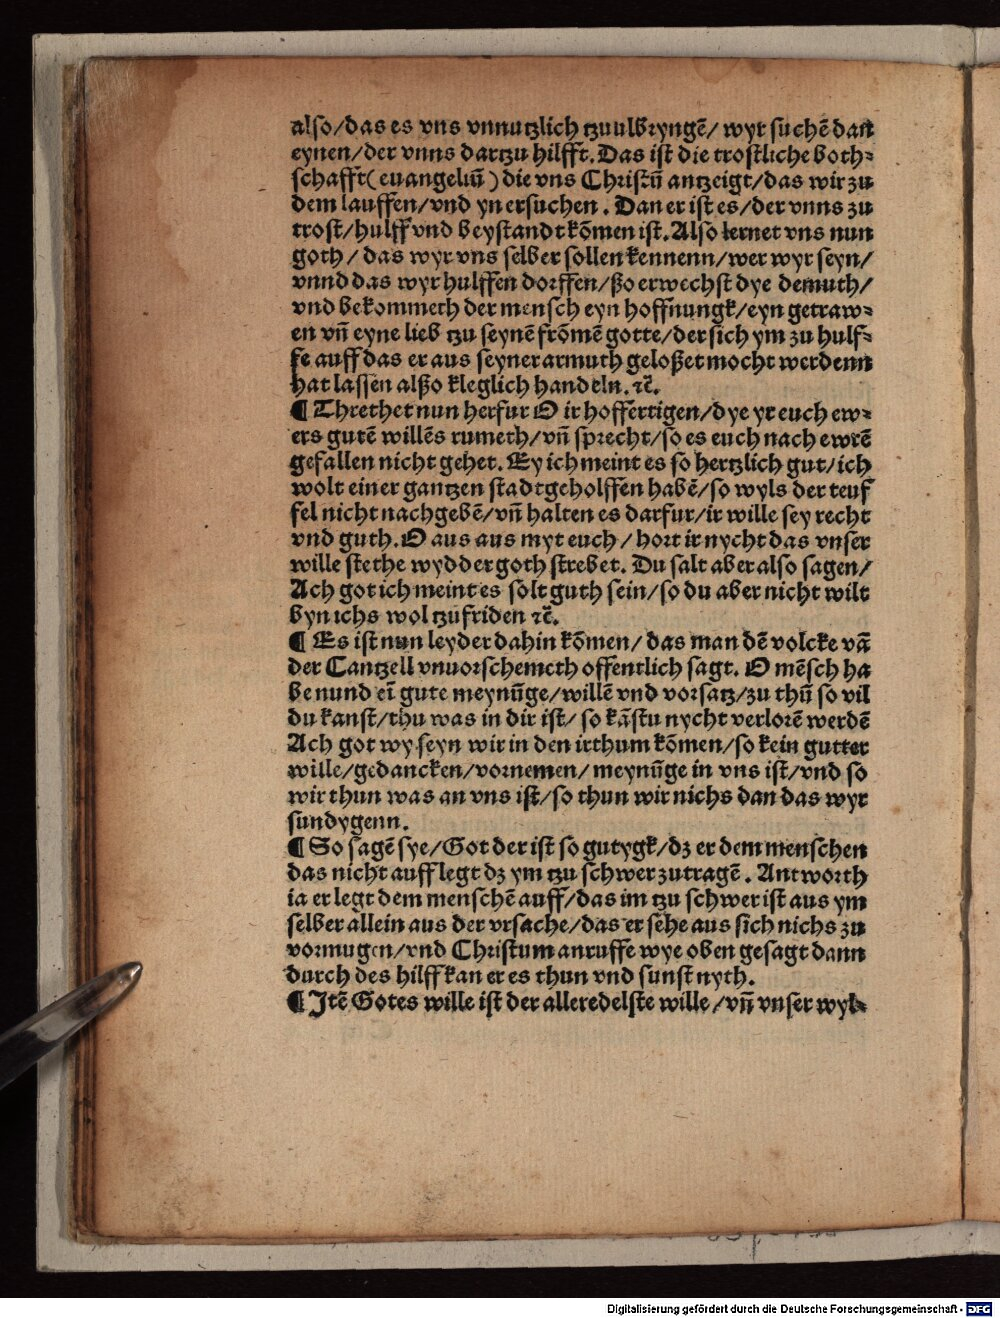 also/das es vns vnnutzlich tzuulbryngē/ wyr suchē dan
eynen/der vnns dartzu hilfft. Das ist die trostliche both⸗
schafft( euangeliū ) die vns Christū antzeigt/das wir zu
dem lauffen/vnd yn ersuchen . Dan er ist es/der vnns zu
trost/hulff vnd beystandt kōmen ist. Also lernet vns nun
goth/ das wyr vns selber sollen kennenn/wer wyr seyn/
vnnd das wyr hulffen dorffen/ßo erwechst dye demuth/
vnd bekommeth der mensch eyn hoffnungk/eyn getraw⸗
en vn̄ eyne lieb tzu seynē frōmē gotte/der sich ym zu hulf⸗
fe auff das er aus seyner armuth geloßet mocht werdenn
hat lassen alßo kleglich handeln. ꝛc̄.
¶ Threthet nun herfur O ir hoffertigen/dye yr euch ew⸗
ers gutē willēs rumeth/vn̄ sprecht/so es euch nach ewrē
gefallen nicht gehet. Ey ich meint es so hertzlich gut/ich
wolt einer gantzen stadt geholffen habē/so wyls der teuf
fel nicht nachgebē/vn̄ halten es darfur/ir wille sey recht
vnd guth. O aus aus myt euch/ hort ir nycht das vnser
wille stethe wydder goth strebet. Du salt aber also sagen/
Ach got ich meint es solt guth sein/so du aber nicht wilt
byn ichs wol tzufriden ꝛc̄.
¶ Es ist nun leyder dahin kōmen/ das man dē volcke vā
der Cantzell vnuorschemeth offentlich sagt. O mēsch ha
be nund eī gute meynūge/willē vnd vorsatz/zu thū so vil
du kanst/thu was in dir ist/ so kāstu nycht verlorē werdē
Ach got wy seyn wir in den irthum kōmen/so kein gutter
wille/gedancken/vornemen/meynūge in vns ist/vnd so
wir thun was an vns ist/so thun wir nichs dan das wyr
sundygenn.
¶ So sagē sye/Got der ist so gutygk/dz er dem menschen
das nicht auff legt dz ym tzu schwer zutragē . Antworth
ia er legt dem menschē auff/das im tzu schwer ist aus ym
selber allein aus der vrsache/das er sehe aus sich nichs zu
vormugen/vnd Christum anruffe wye oben gesagt dann
durch des hilff kan er es thun vnd sunst nyth.
¶ Jtē Gotes wille ist der alleredelste wille/vn̄ vnser wyl⸗
Digitalisierung gefördert durch die Deutsche Forschungsgemeinschaft - DFG